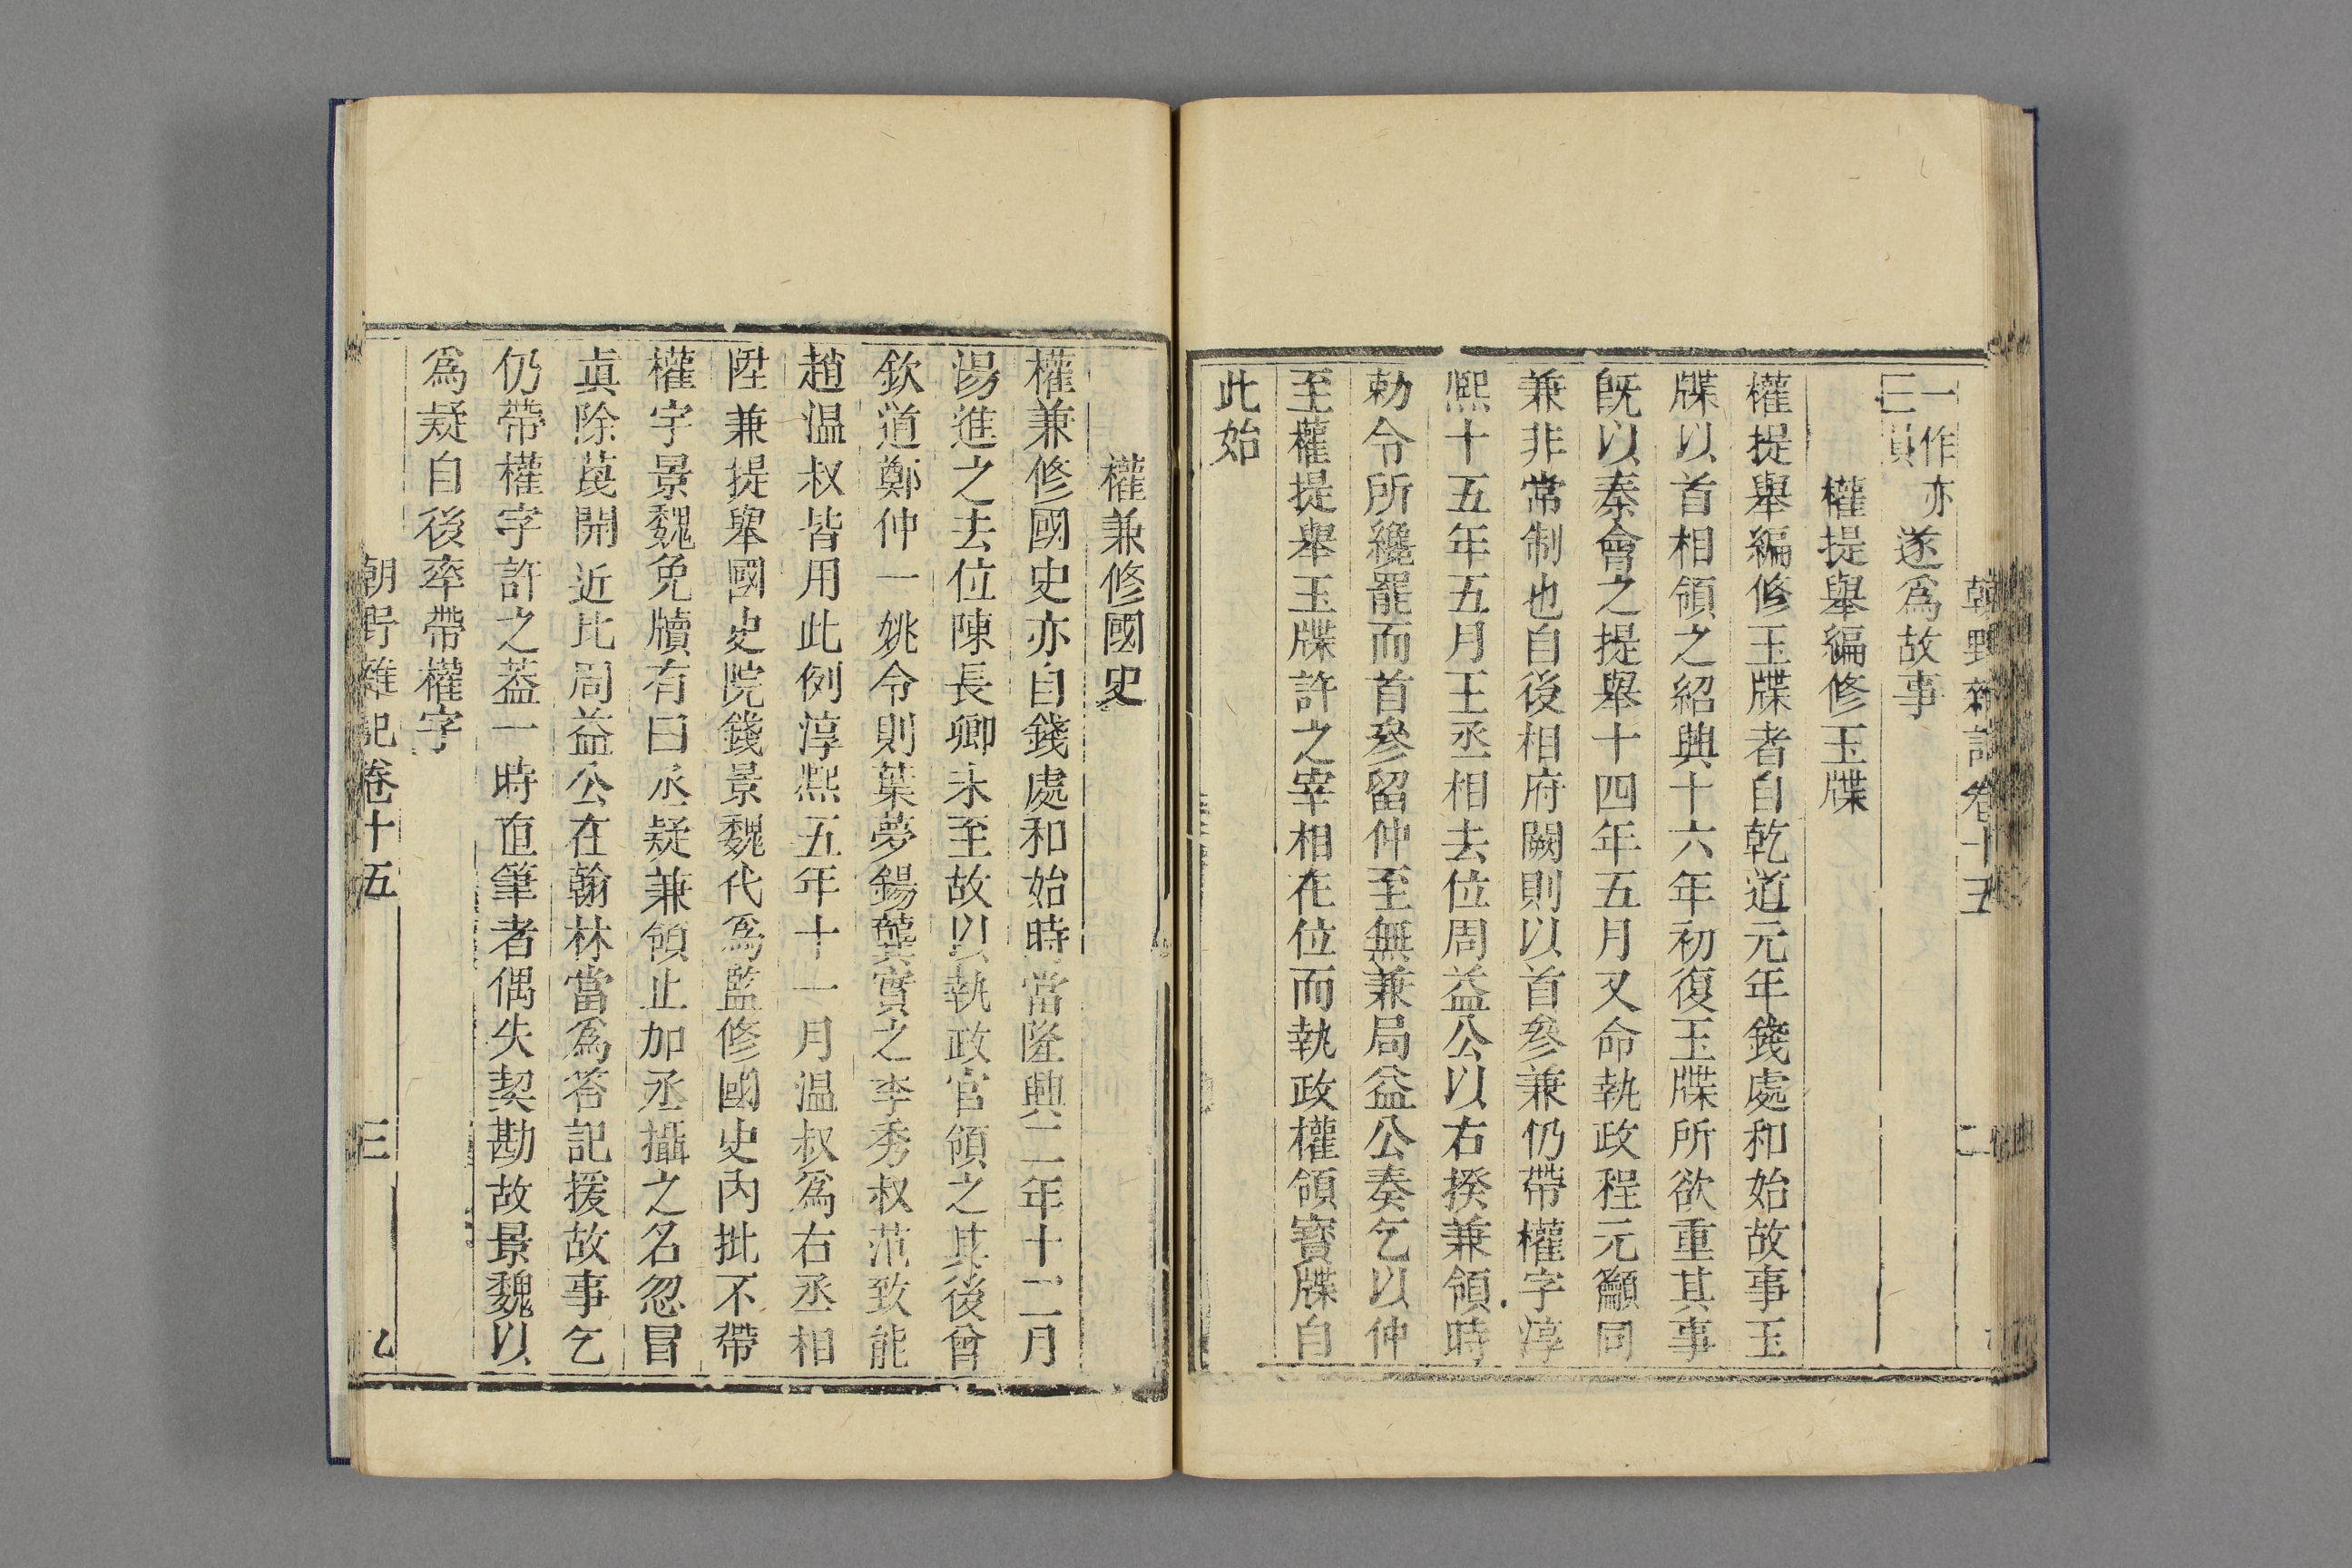 朝野雜記卷十五 二
一作亦
三員 遂爲故事
權提舉編修玉牒
權提舉編修玉牒者自乾道元年錢處和始故事玉
牒以首相領之紹興十六年初復玉牒所欲重其事
旣以秦會之提舉十四年五月又命執政程元籲同
兼非常制也自後相府闕則以首參兼仍帶權字淳
熙十五年五月王丞相去位周益公以右揆兼領時
勅令所纔罷而首參留仲至無兼局益公奏乞以仲
至權提舉玉牒許之宰相在位而執政權領寶牒自
此始
權兼修國史
權兼修國史亦自錢處和始時當隆興二年十二月
湯進之去位陳長卿未至故以執政官領之其後曾
欽道鄭仲一姚令則葉夢錫龔實之李秀叔范致能
趙温叔皆用此例淳熙五年十一月温叔爲右丞相
陞兼提舉國史院錢景魏代爲監修國史內批不帶
權字景魏免牘有曰永疑兼領止加丞攝之名忽冒
眞除莨開近比周益公在翰林當爲荅記援故事乞
仍帶權字許之葢一時直筆者偶失契勘故景魏以
爲疑自後率帶權字
朝野雜記卷十五 三 乙